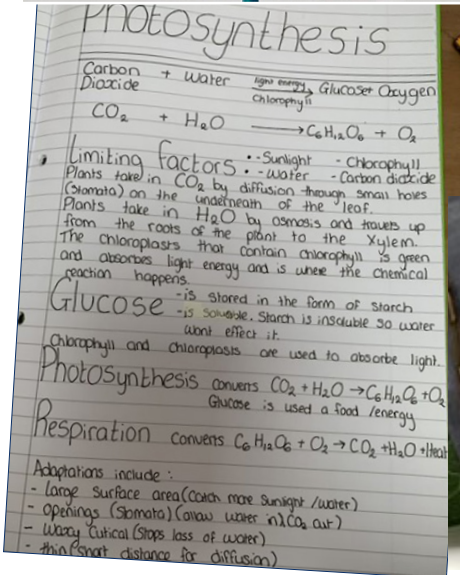 Photosynthesis
Carbon Dioxide + Water light energy → Chlorophyll Glucose + Oxygen
CO₂ + H₂O → C₆H₁₂O₆ + O₂
Limiting factors: - Sunlight - Chlorophyll
- Water - Carbon dioxide
Plants take in CO₂ by diffusion through small holes
(stomata) on the underneath of the leaf.
Plants take in H₂O by osmosis and travels up
from the roots of the plant to the xylem.
The chloroplasts that contain chlorophyll is green
and absorbes light energy and is where the chemical
reaction happens.
Glucose - is stored in the form of starch
- is soluable. Starch is insoluble so water
wont effect it.
Chlorophyll and chloroplasts are used to absorbe light.
Photosynthesis converts CO₂ + H₂O → C₆H₁₂O₆ + O₂
Glucose is used a food /energy
Respiration converts C₆H₁₂O₆ + O₂ → CO₂ + H₂O + Heat
Adaptations include :
- Large surface area (catch more sunlight /water)
- openings (stomata) (allow water in) CO₂ out)
- Waxy Cutical (stops loss of water)
- thin (short distance for diffusion)